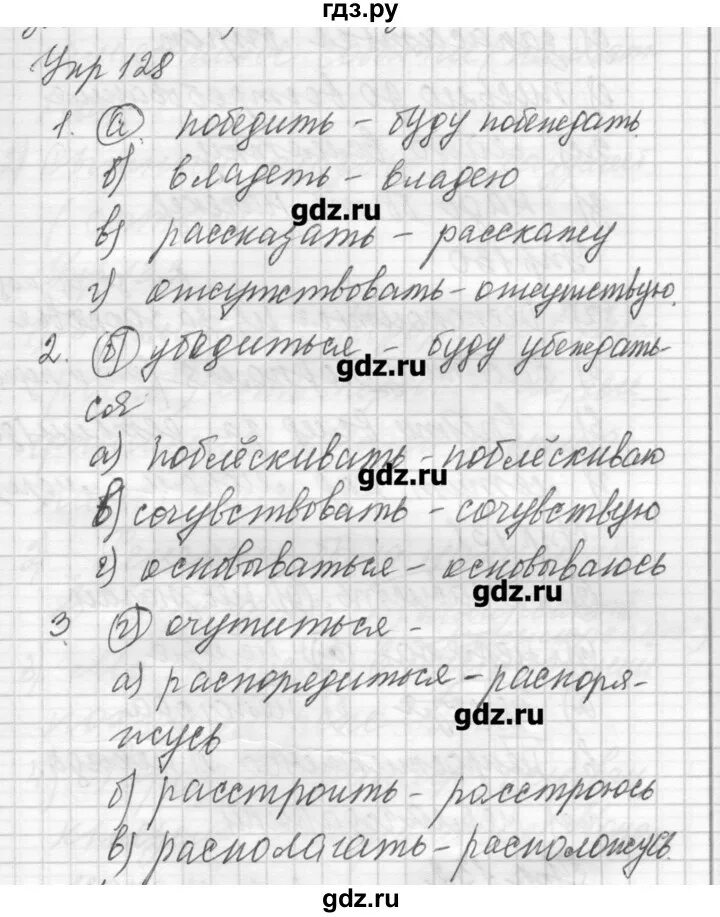 гдз.ру
Упр 128
1. а) победить – буду побеждать
б) владеть – владею
gdz.ru
в) рассказать – расскажу
г) отсутствовать – отсутствую.
2. б) убедиться – буду убеждать-
gdz.ru
ся
а) поблёскивать – поблёскиваю
gdz.ru
в) сочувствовать – сочувствую
г) основываться – основываюсь
gdz.ru
3 г) очутиться –
а) распорядиться – распоря-
gdz.ru
жусь
б) расстроить – расстраюсь
gdz.ru
в) располагать – расположусь.
gdz.ru